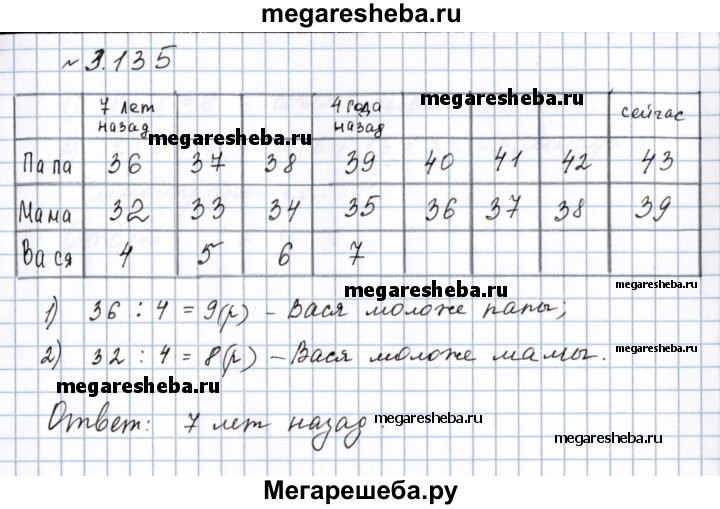 megaresheba.ru
№ 3.135
7 лет назад 4 года назад megaresheba.ru сейчас
megaresheba.ru
Папа 36 37 38 39 40 41 42 43
Мама 32 33 34 35 36 37 38 39
Вася 4 5 6 7
megaresheba.ru megaresheba.ru
1) 36 : 4 = 9(р) – Вася моложе папы;
2) 32 : 4 = 8(р) – Вася моложе мамы.
megaresheba.ru
megaresheba.ru
Ответ: 7 лет назад.
megaresheba.ru
megaresheba.ru
Мегарешеба.ру